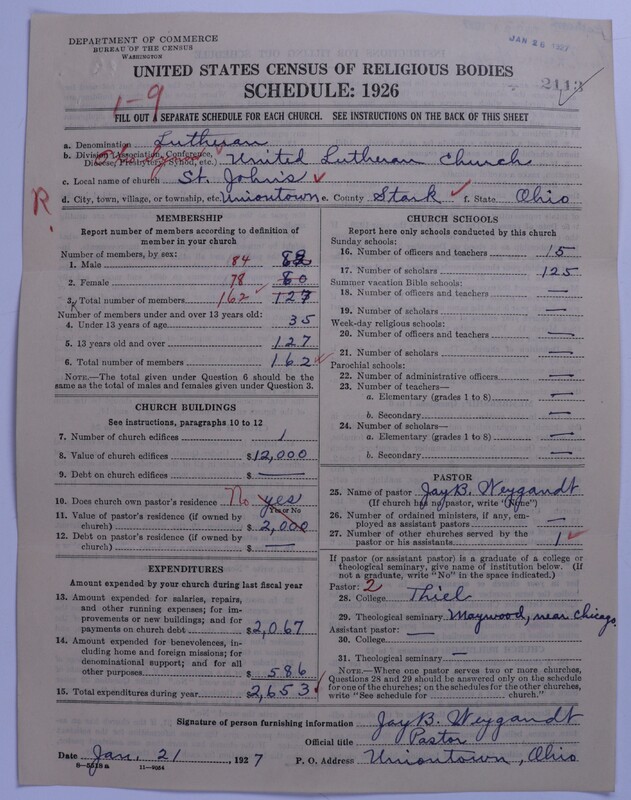 DEPARTMENT OF COMMERCE
BUREAU OF THE CENSUS
WASHINGTON
JAN 26 1927
UNITED STATES CENSUS OF RELIGIOUS BODIES
SCHEDULE: 1926
2113
1-9
FILL OUT A SEPARATE SCHEDULE FOR EACH CHURCH. SEE INSTRUCTIONS ON THE BACK OF THIS SHEET
a. Denomination Lutheran
b. Division (Association, Conference, Diocese, Presbytery, Synod, etc.) United Lutheran Church
c. Local name of church St. John's
R.
d. City, town, village, or township, etc. Uniontown e. County Stark f. State Ohio
MEMBERSHIP
Report number of members according to definition of member in your church
Number of members, by sex:
1. Male 84
2. Female 78 60
3. Total number of members 162 127
Number of members under and over 13 years old:
4. Under 13 years of age 35
5. 13 years old and over 127
6. Total number of members 162
NOTE.—The total given under Question 6 should be the same as the total of males and females given under Question 3.
CHURCH BUILDINGS
See instructions, paragraphs 10 to 12
7. Number of church edifices 1
8. Value of church edifices $12,000
9. Debt on church edifices $ —
10. Does church own pastor's residence No yes
Yes or No
11. Value of pastor's residence (if owned by church) $2,000
12. Debt on pastor's residence (if owned by church) $ —
EXPENDITURES
Amount expended by your church during last fiscal year
13. Amount expended for salaries, repairs, and other running expenses; for improvements or new buildings; and for payments on church debt $2,067
14. Amount expended for benevolences, including home and foreign missions; for denominational support; and for all other purposes $ 586
15. Total expenditures during year $2,653
CHURCH SCHOOLS
Report here only schools conducted by this church
Sunday schools:
16. Number of officers and teachers 15
17. Number of scholars 125
Summer vacation Bible schools:
18. Number of officers and teachers —
19. Number of scholars —
Week-day religious schools:
20. Number of officers and teachers —
21. Number of scholars —
Parochial schools:
22. Number of administrative officers —
23. Number of teachers—
a. Elementary (grades 1 to 8) —
b. Secondary —
24. Number of scholars—
a. Elementary (grades 1 to 8) —
b. Secondary —
PASTOR
25. Name of pastor Jay B. Weygandt
(If church has no pastor, write "None")
26. Number of ordained ministers, if any, employed as assistant pastors —
27. Number of other churches served by the pastor or his assistants 1
If pastor (or assistant pastor) is a graduate of a college or theological seminary, give name of institution below. (If not a graduate, write "No" in the space indicated.)
Pastor: 2
28. College Thiel
29. Theological seminary Maywood, near Chicago
Assistant pastor: —
30. College
31. Theological seminary —
NOTE.—Where one pastor serves two or more churches, Questions 28 and 29 should be answered only on the schedule for one of the churches; on the schedules for the other churches, write "See schedule for church."
Signature of person furnishing information Jay B. Weygandt
Official title Pastor
Date Jan. 21, 1927 P. O. Address Uniontown, Ohio
8-5518 a 11-9034